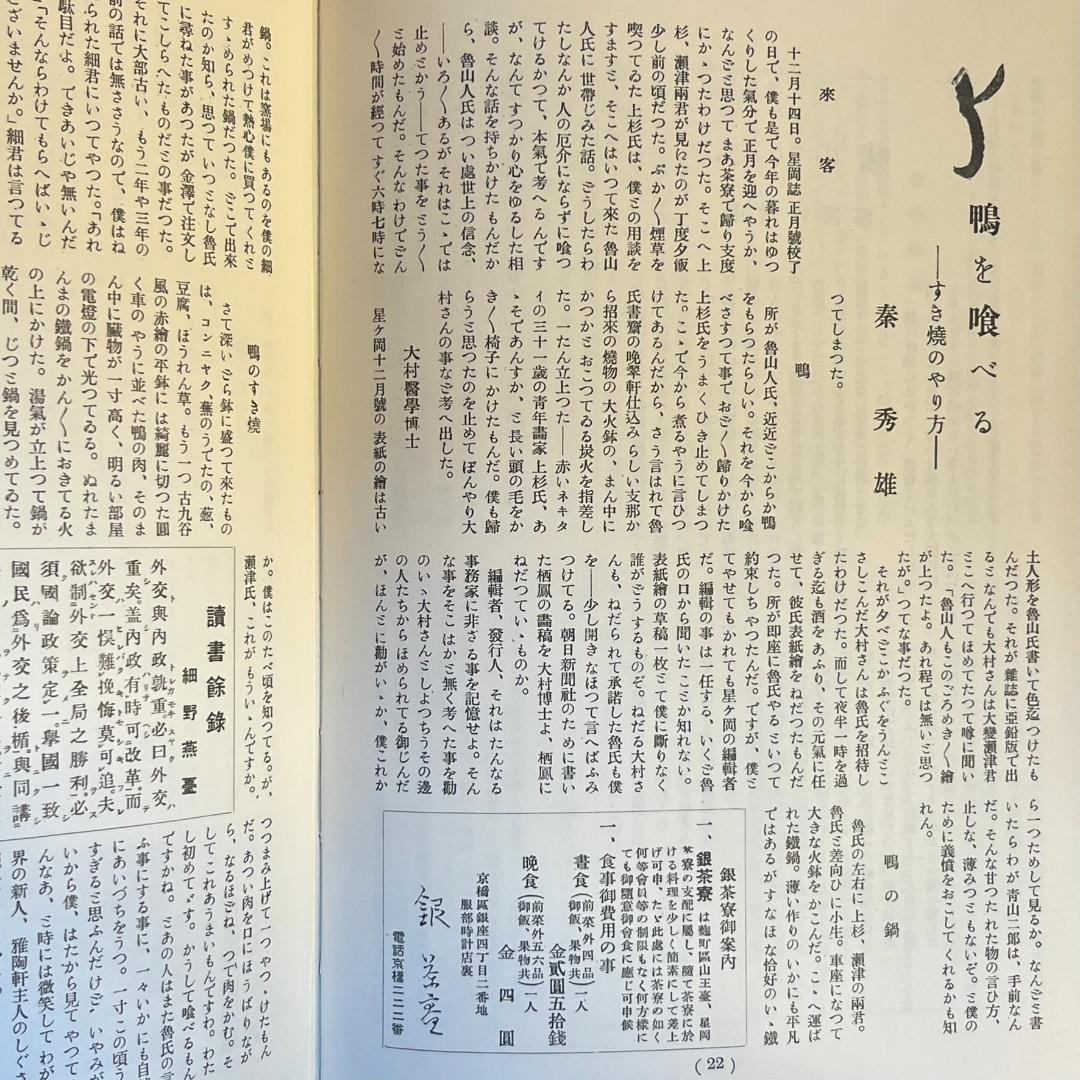 鴨を喰べる
――すき燒のやり方――
秦秀雄
來客
十二月十四日。星岡誌正月號校了
の日で、僕も是で今年の暮れはゆつ
くりした氣分で正月を迎へやうか、
なんどと思つてまあ茶寮で歸り支度
にかゝつたわけだつた。そこへ上
杉、瀬津兩君が見ゐたのが丁度夕飯
少し前の頃だつた。ぷか〱煙草を
喫つてゐた上杉氏は、僕との用談を
すますと、そこへはいつて來た魯山
人氏に世帶じみた話。どうしたらわ
たしなんか人の厄介にならずに喰つ
てけるかつて、本氣で考へるんです
が、なんてすつかり心をゆるした相
談。そんな話を持ちかけたもんだか
ら、魯山人氏はつい處世上の信念、
――いろ〱あるがそれはこゝでは
止めとかう――てつた事をとう〱
と始めたもんだ。そんなわけでどん
〱時間が經つてすぐ六時七時にな
つてしまつた。
鴨
所が魯山人氏、近近どこからか鴨
をもらつたらしい。それを今から喰
べさすつて事でおどく歸りかけた
上杉氏をうまくひき止めてしまつ
た。こゝで今から煮るやうに言ひつ
けてあるんだから、さう言はれて魯
氏書齋の晩翠軒仕込みらしい支那か
ら招來の燒物の大火鉢の、まん中に
かつかとおこつてゐる炭火を指差し
た。一たん立上つた――赤いネキタ
イの三十一歳の青年畫家上杉氏、あ
ゝそであんすか、と長い頭の毛をか
き〱椅子にかけたもんだ。僕も歸
らうと思つたのを止めてぼんやり大
村さんの事など考へ出した。
大村醫學博士
星ヶ岡十二月號の表紙の繪は古い
土人形を魯山氏書いて色迄つけたも
んだつた。それが雜誌に亞鉛版で出
るとなんでも大村さんは大變瀬津君
とこへ行つてほめてたつて噂に聞い
た。「魯山人もこのごろめき〱繪
が上つたよ。あれ程では無いと思つ
たが。」つてな事だつた。
それが夕べどこかふぐをうんとこ
さしこんだ大村さんは魯氏を招待し
たわけだつた。而して夜半一時を過
ぎる迄も酒をあふり、その元氣に任
せて、彼氏表紙繪をねだつたもんだ
つた。所が即座に魯氏やるといつて
約束しちやつたんだ。ですが、僕と
てやせてもかれても星ヶ岡の編輯者
だ。編輯の事は一任する、いくど魯
氏の口から聞いたことか知れない。
表紙繪の草稿一枚とて僕に斷りなく
誰がどうするものぞ。ねだる大村さ
んも、ねだられて承諾した魯氏も僕
を――少し開きなほつて言へばふみ
つけてる。朝日新聞社のために書い
た栖鳳の畵稿を大村博士よ、栖鳳に
ねだつていゝものか。
編輯者、發行人、それはたんなる
事務家に非さる事を記憶せよ。そん
な事をそこはかと無く考へた事を勸
のいゝ大村さんとしよつちうその邊
の人たちからほめられてる御じんだ
が、ほんとに勸がいゝか、僕これか
ら一つためして見るか。なんどと書
いたらわが青山二郎は、手前なん
だ。そんな甘つたれた物の言ひ方、
止しな、薄みつともないぞ。と僕の
ために義憤をおこしてくれるかも知
れん。
鴨の鍋
魯氏の左右に上杉、瀬津の兩君。
魯氏と差向ひに小生。車座になつて
大きな火鉢をかこんだ。こゝへ運ば
れた鐵鍋。薄い作りのいかにも平凡
ではあるがすなほな恰好のいゝ鐵
銀茶寮御案内
一、銀茶寮は麴町區山王臺、星岡
茶寮の支配に屬し、隨て茶寮に於
ける料理を少しく簡素にして差上
げ可申、たゞ此處には茶寮の如く
何等會員等の制限もなく何方樣に
ても御隨意御會食に應じ可申候
一、食事御費用の事
晝食(前菜外四品 御飯、果物共)一人
金貳圓五拾錢
晩食(前菜外五六品 御飯、果物共)一人
金四圓
京橋區銀座四丁目二番地
服部時計店裏
銀茶寮
電話京橋二二二番
(22)
鍋。これは窯場にもあるのを僕の細
君がめつけて熱心僕に買つてくれと
すゝめられた鍋だつた。どこで出來
たのか知ら、思つていつとなし魯氏
に尋ねた事があつたが金澤で注文し
てこしらへたものだとの事だつた。
それに大部古い、もう二年や三年の
前の話では無ささうなので、僕はね
られた細君にいつてやつた。「あれ
駄目だよ。できあいじや無いんだ
「そんならわけてもらへばいゝじ
ございませんか。」細君は言つてる
鴨のすき燒
さて深いどら鉢に盛つて來たもの
は、コンニャク、蕪のうでたの、葱、
豆腐、ほうれん草。もう一つ古九谷
風の赤繪の平鉢には綺麗に切つた圓
く車のやうに並べた鴨の肉、そのま
ん中に臟物が一寸高く、明るい部屋
の電燈の下で光つてゐる。ぬれたま
んまの鐵鍋をかん〱におきてる火
の上にかけた。湯氣が立上つて鍋が
乾く間、じつと鍋を見つめてゐた。
か。僕はこのたべ頃を知つてる。が、
瀬津氏、これがもういゝんですか。
讀書餘錄
細野燕臺
外交與內政孰重。必曰外交
重矣。盖內政有時可改革。而
外交一悞。難挽悔莫可追。夫
欲制外交上全局之勝利。必
須國論政策定。一擧國一致
國民爲外交之後楯。與同講
つつまみ上げて一つやつゝけたもん
だ。あつい肉を口にほうばりなが
ら、なるほどね、つで肉をかむ。そ
してこれあうまいもんですわ。わた
し初めてゞす。かうして喰べるもん
ですかね。とあの人はまた魯氏の言
ふ事にする事に、一々いかにも自
にあいづちをうつ。一寸この頃う
すぎると思ふんだけど、いやみが
いから僕、はたから見てやつて
んなあ、と時には微笑してわが
界の新人、雅陶軒主人のしぐさ